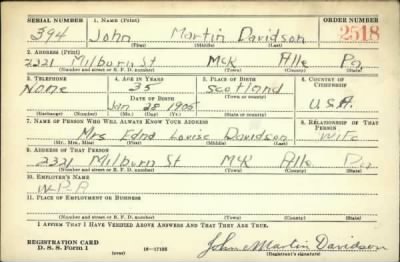 SERIAL NUMBER 1. NAME (Print) ORDER NUMBER
394 John Martin Davidson 2518
(First) (Middle) (Last)
2. ADDRESS (Print)
2321 Milburn St McK Alle Pa
(Number and street or R. F. D. number) (Town) (County) (State)
3. TELEPHONE 4. AGE IN YEARS 5. PLACE OF BIRTH 6. COUNTRY OF CITIZENSHIP
None 35 Scotland
DATE OF BIRTH (Town or county)
Jan 28 1905 U.S.A.
(Exchange) (Number) (Mo.) (Day) (Yr.) (State or country)
7. NAME OF PERSON WHO WILL ALWAYS KNOW YOUR ADDRESS 8. RELATIONSHIP OF THAT PERSON
Mrs Edna Louise Davidson Wife
(Mr., Mrs., Miss) (First) (Middle) (Last)
9. ADDRESS OF THAT PERSON
2321 Milburn St McK Alle Pa
(Number and street or R. F. D. number) (Town) (County) (State)
10. EMPLOYER'S NAME
W-P-A
11. PLACE OF EMPLOYMENT OR BUSINESS
(Number and street or R. F. D. number) (Town) (County) (State)
I AFFIRM THAT I HAVE VERIFIED ABOVE ANSWERS AND THAT THEY ARE TRUE.
REGISTRATION CARD
D. S. S. Form 1 (over) 16-17105 John Martin Davidson
(Registrant's signature)